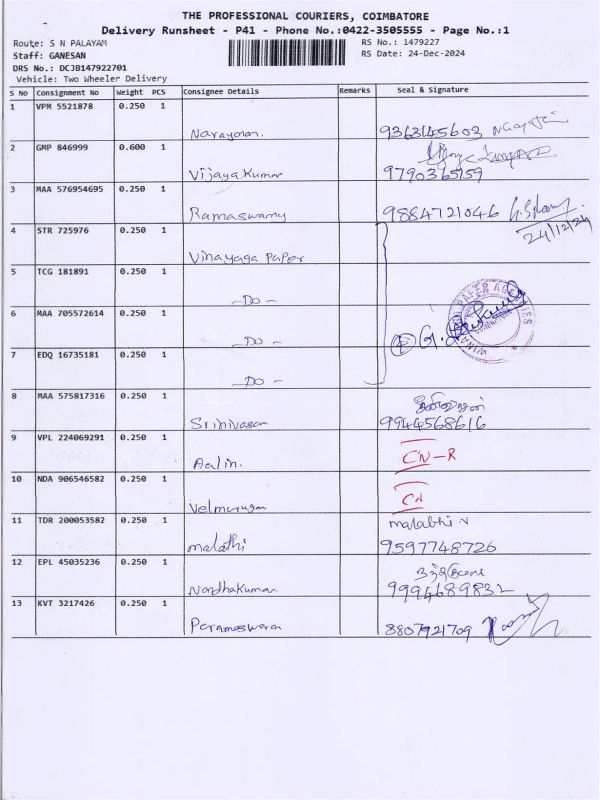 THE PROFESSIONAL COURIERS, COIMBATORE
Delivery Runsheet - P41 - Phone No.:0422-3505555 - Page No.:1
Route: S N PALAYAM RS No.: 1479227
Staff: GANESAN RS Date: 24-Dec-2024
DRS No.: DCJB147922701
Vehicle: Two Wheeler Delivery
S No Consignment No Weight PCS Consignee Details Remarks Seal & Signature
1 VPM 5521878 0.250 1
Narayanan. 9363145603
2 GMP 846999 0.600 1
Vijaya Kumar 9790365159
3 MAA 576954695 0.250 1
Ramaswamy 9884721046
24/12/24
4 STR 725976 0.250 1
Vinayaga Paper
5 TCG 181891 0.250 1
-Do-
6 MAA 705572614 0.250 1
-Do-
4
7 EDQ 16735181 0.250 1
-Do-
8 MAA 575817316 0.250 1
Srinivasan 9944568616
9 VPL 224069291 0.250 1
Aalin. CN-R
10 NDA 906546582 0.250 1
Velmurugan CN
11 TDR 200053582 0.250 1
malathi 9597748726
12 EPL 45035236 0.250 1
Nandhakumar 9994689832
13 KVT 3217426 0.250 1
Parameswaran 8807921709